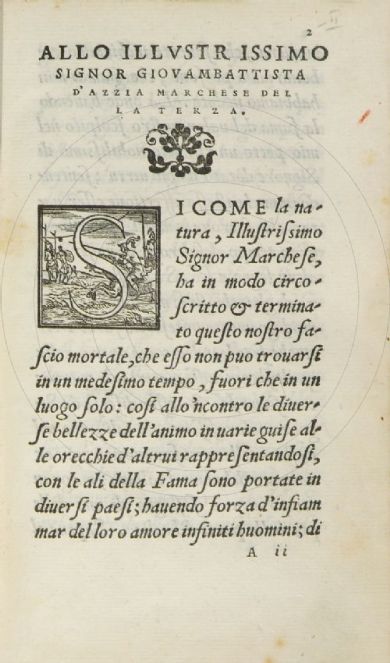 2
ALLO ILLVSTRISSIMO
SIGNOR GIOVAMBATTISTA
D'AZZIA MARCHESE DEL
LA TERZA.
SI COME la na-
tura, Illustrissimo
Signor Marchese,
ha in modo circo-
scritto & termina-
to questo nostro fa-
scio mortale, che esso non puo trouarsi
in un medesimo tempo, fuori che in un
luogo solo: cosi allo'ncontro le diuer-
se bellezze dell'animo in uarie guise al-
le orecchie d'altrui rappresentandosi,
con le ali della Fama sono portate in
diuersi paesi; hauendo forza d'infiam
mar del loro amore infiniti huomini; di
A ii